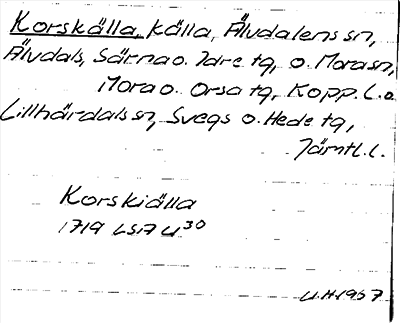 Korskälla, källa, Älvdalens sn,
Älvdals, Särna o. Idre tg, o. Mora sn,
Mora o. Orsa tg, Kopp. l. o
Lillhärdals sn, Svegs o. Hede tg,
Jämtl. l.
Korskiälla
1719 LSA U30
U.H. 1957